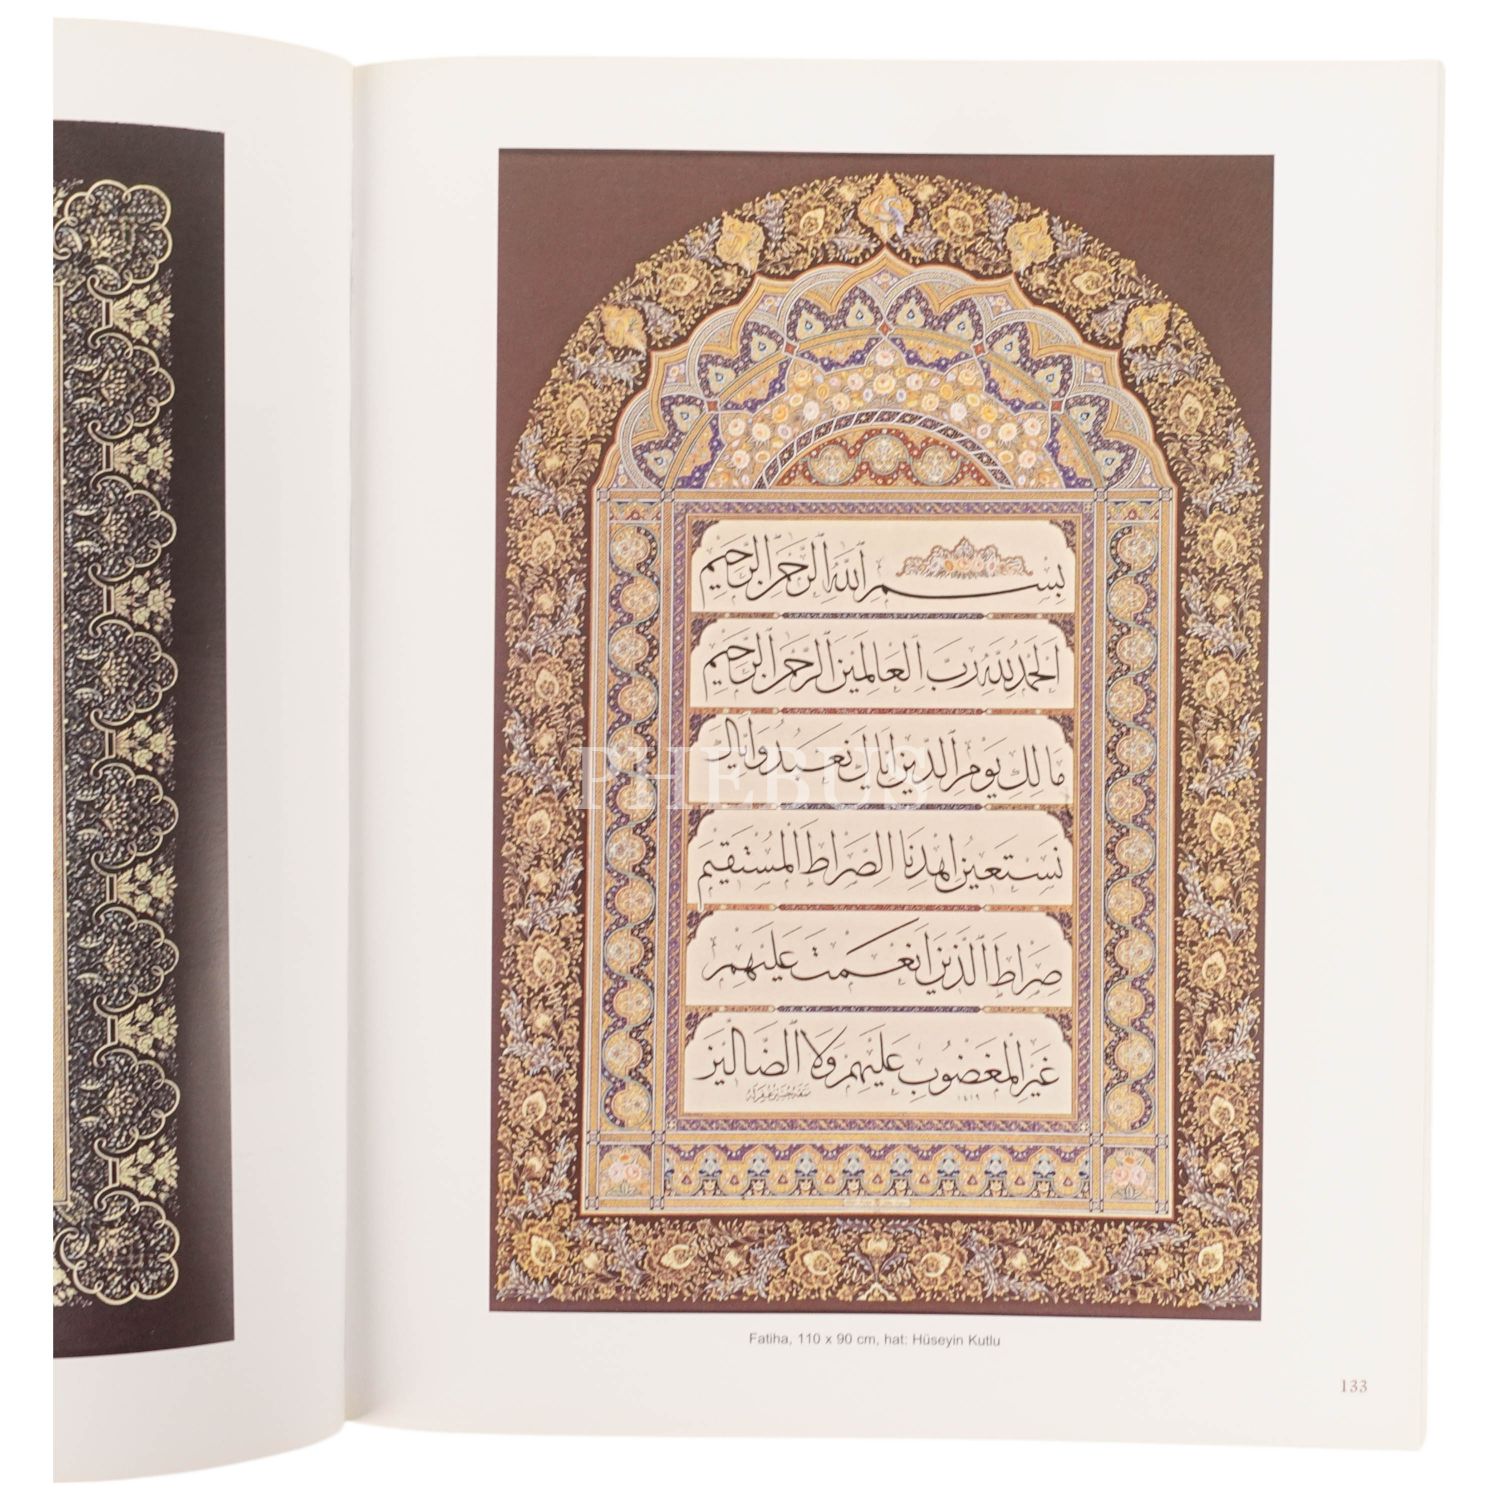 بسم الله الرحمن الرحيم
الحمد لله رب العالمين الرحمن الرحيم
مالك يوم الدين اياك نعبد واياك
نستعين اهدنا الصراط المستقيم
صراط الذين انعمت عليهم
غير المغضوب عليهم ولا الضالين
١٤١٩
PHEBUS
Fatiha, 110 x 90 cm, hat: Hüseyin Kutlu
133